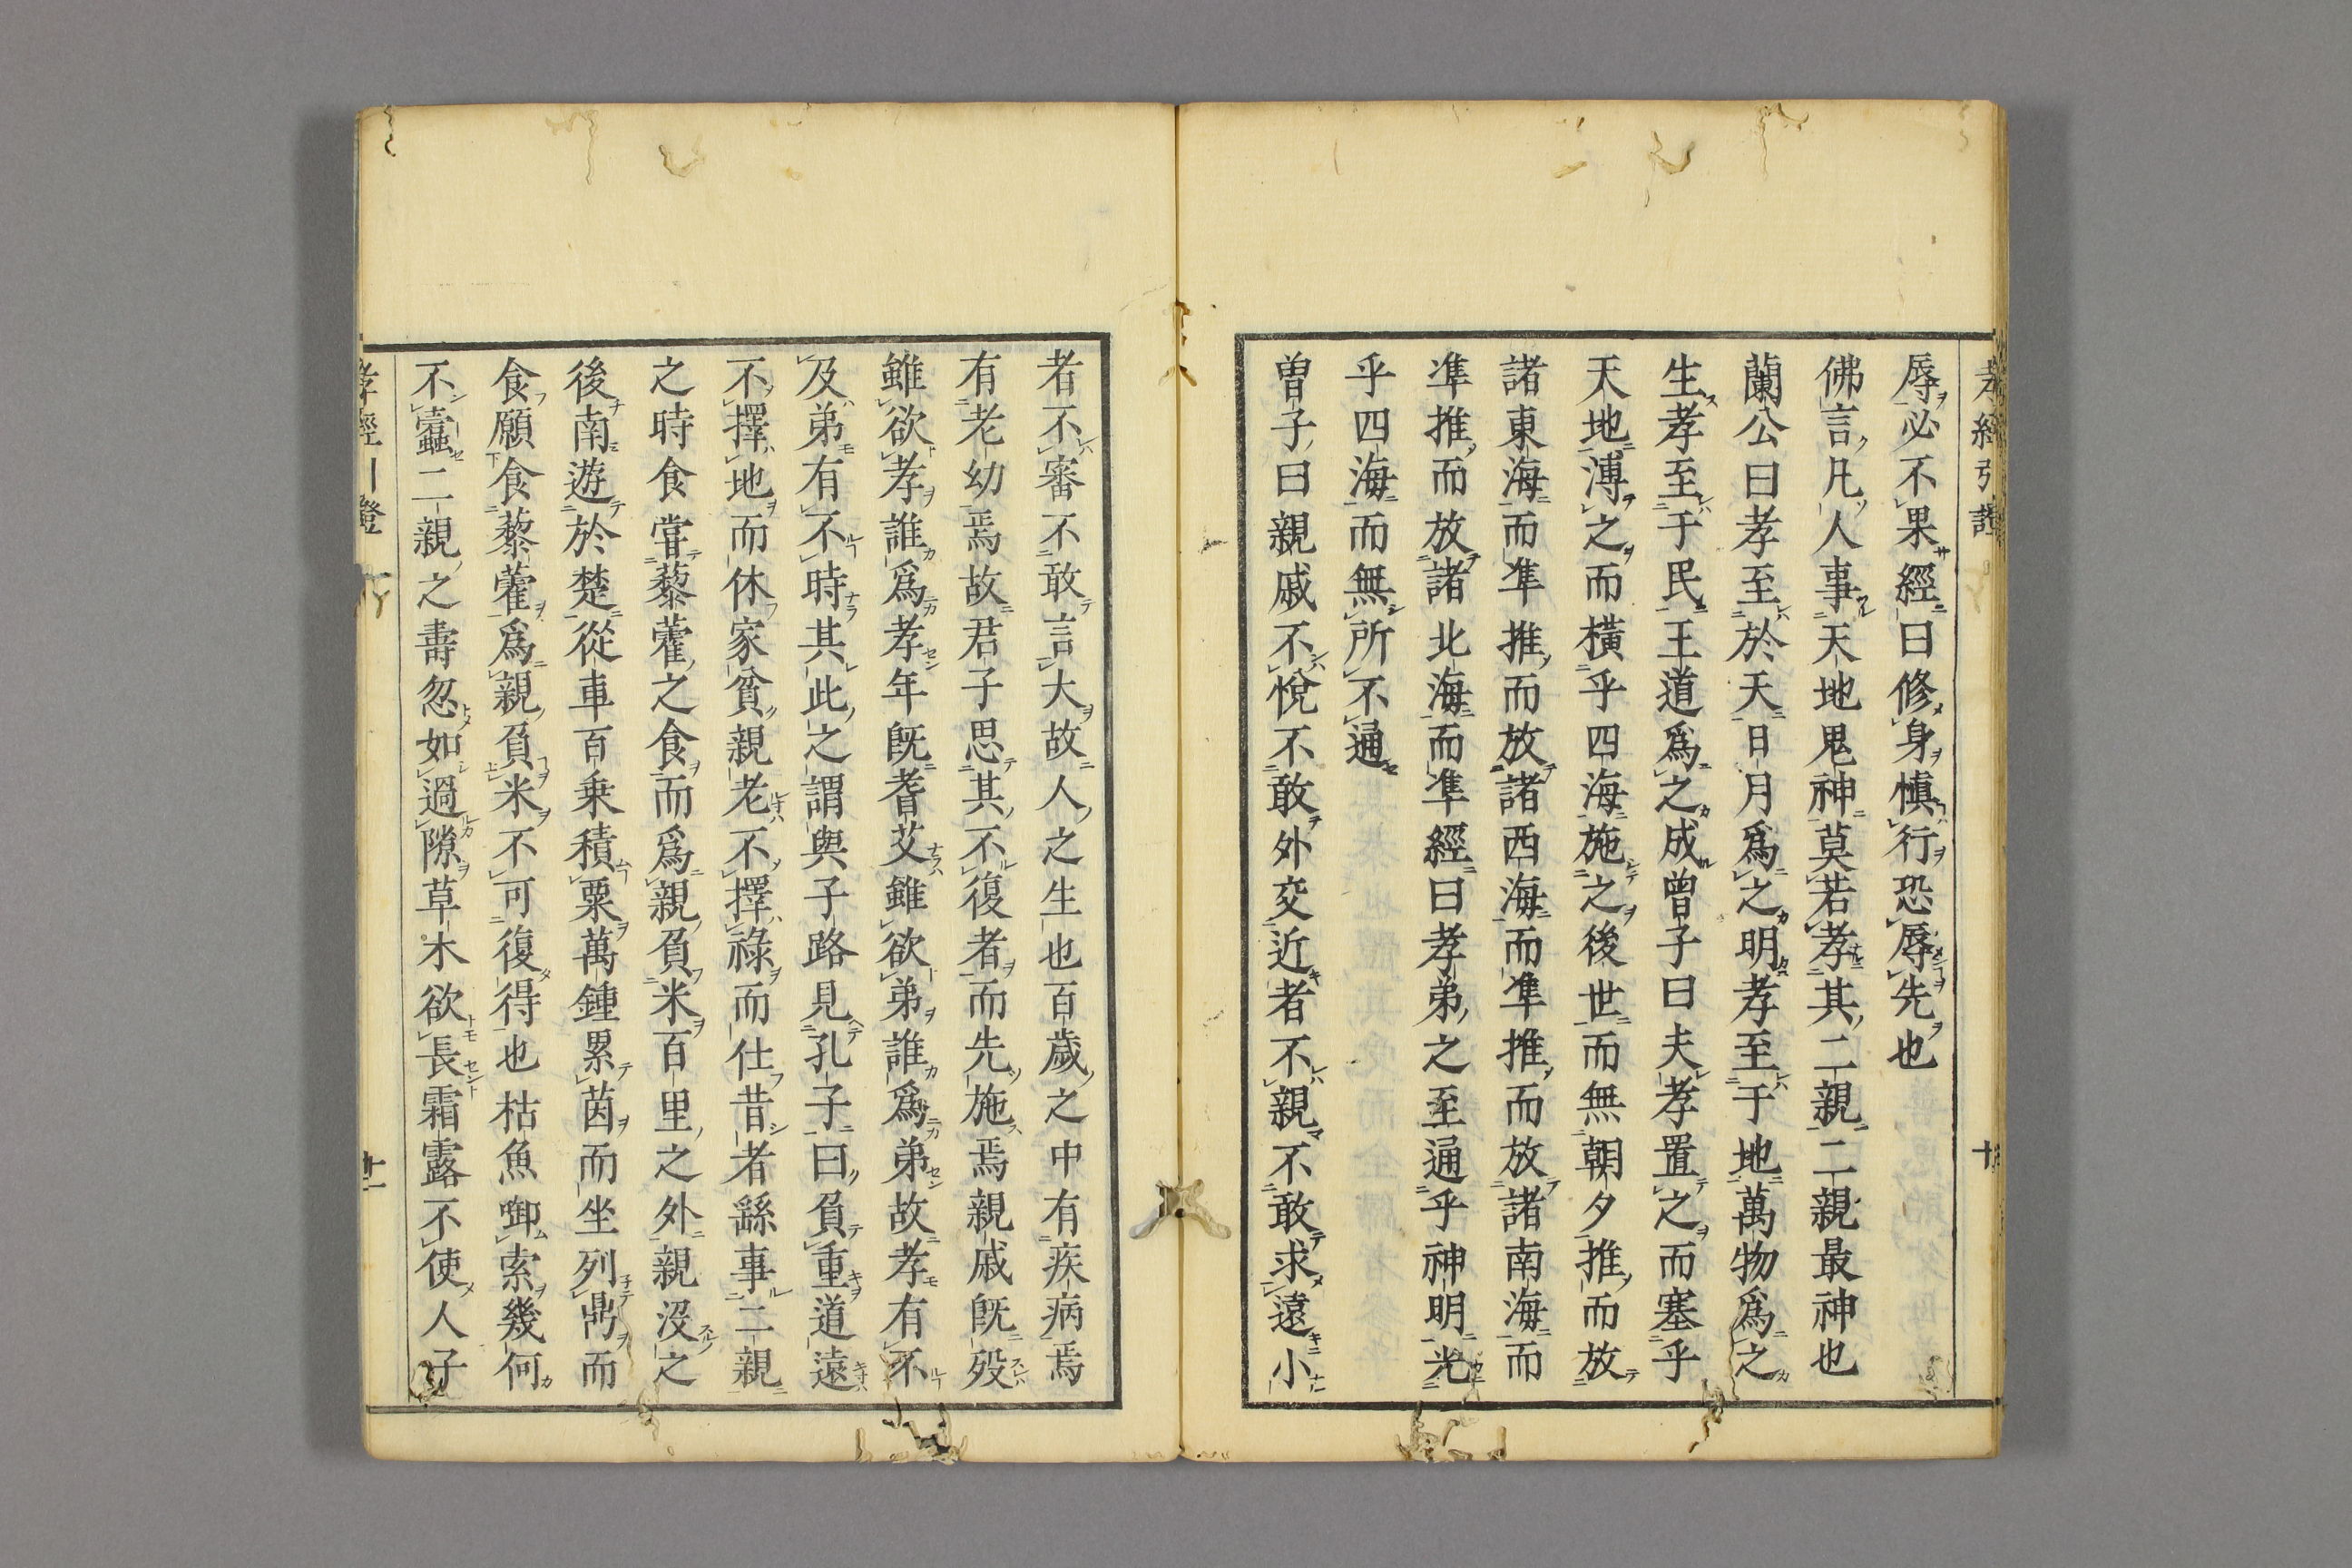 孝經引證
十
辱必不果經曰修身慎行恐辱先也
佛言凡人事天地鬼神莫若孝其二親二親最神也
蘭公曰孝至於天日月爲之明孝至于地萬物爲之
生孝至于民王道爲之成曾子曰夫孝置之而塞乎
天地溥之而橫乎四海施之後世而無朝夕推而放
諸東海而準推而放諸西海而準推而放諸南海而
準推而放諸北海而準經曰孝弟之至通乎神明光
乎四海而無所不通
曾子曰親戚不悅不敢外交近者不親不敢求遠小
者不審不敢言大故人之生也百歲之中有疾病焉
有老幼焉故君子思其不復者而先施焉親戚旣歿
雖欲孝誰爲孝年旣耆艾雖欲弟誰爲弟故孝有不
及弟有不時其此之謂與子路見孔子曰負重道遠
不擇地而休家貧親老不擇祿而仕昔者繇事二親
之時食嘗藜藿之食而爲親負米百里之外親沒之
後南遊於楚從車百乗積粟萬鍾累茵而坐列鼎而
食願食藜藿爲親負米不可復得也枯魚啣索幾何
不蠹二親之壽忽如過隙草木欲長霜露不使人子
孝經引證
十一